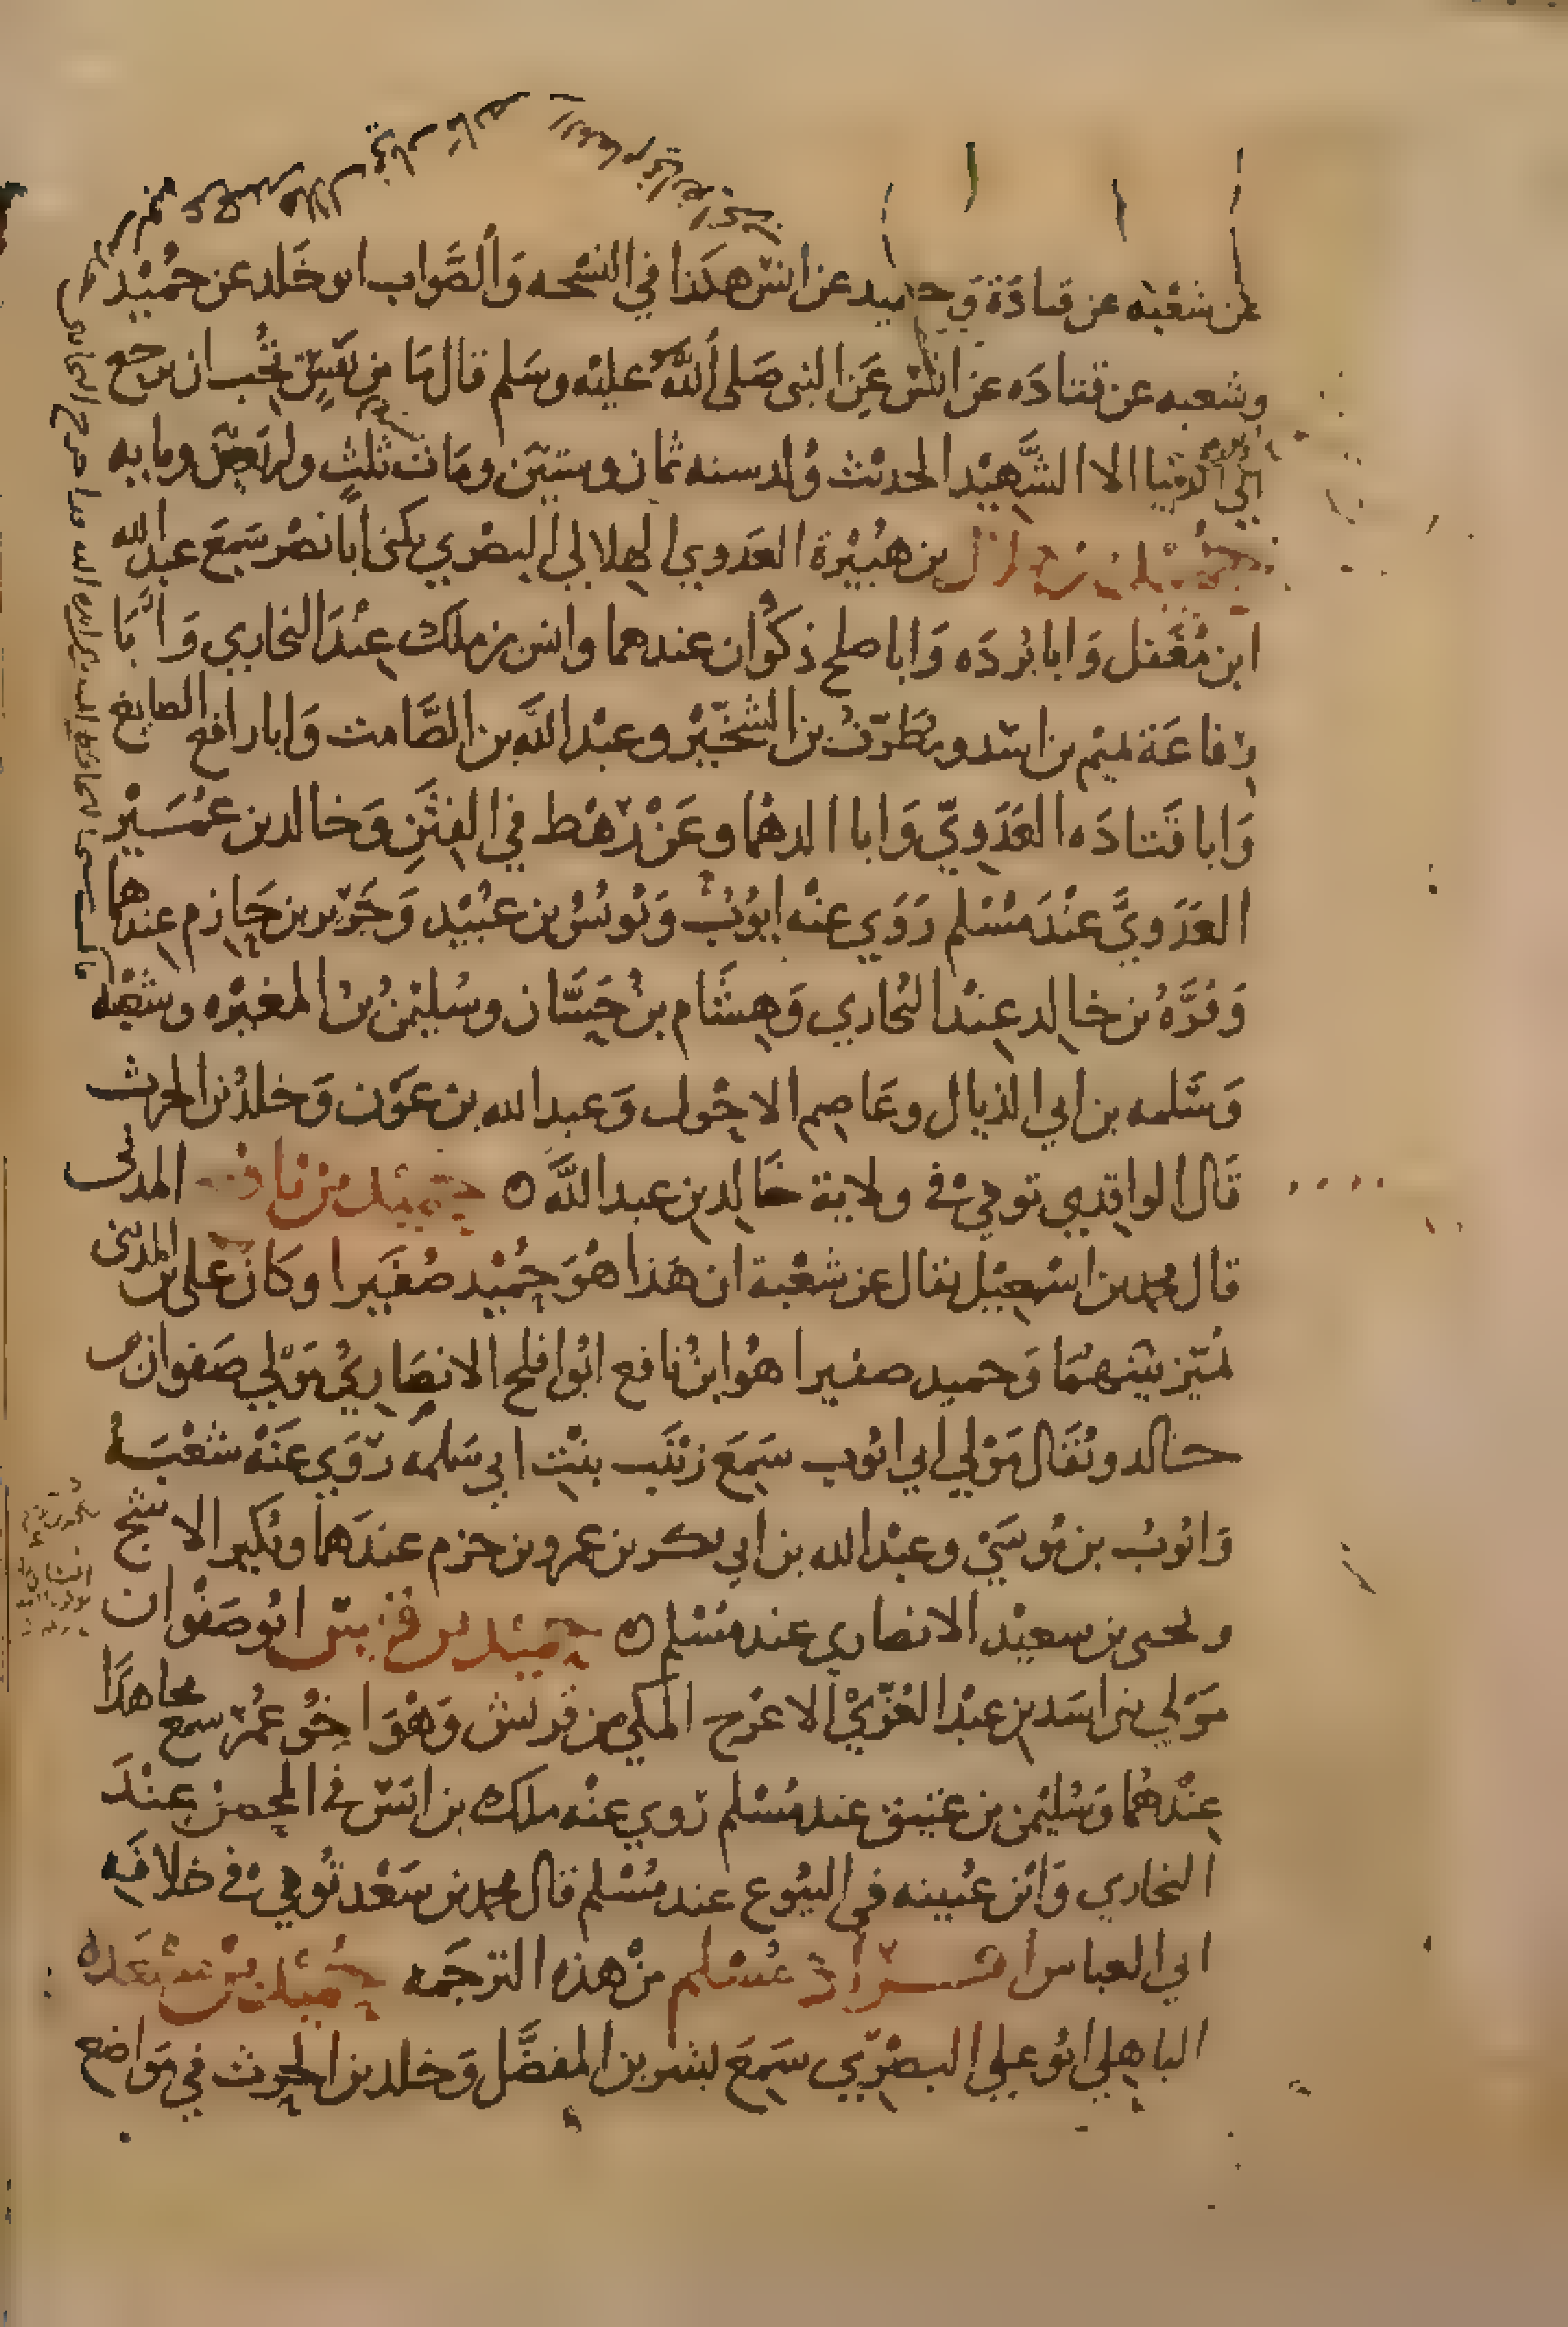 عن شعبه عن قتادة وحميد عن انس هكذا في النسخه والصواب ابو خلد عن حميد
وشعبه عن قتاده عن انس عن النبي صلى الله عليه وسلم قال ما من نفس تحب ان ترجع
الى الدنيا الا الشهيد الحديث ولد سنه ثمان وستين ومات ثلث واربعين ومايه
حميد بن هلال بن هبيرة العدوي الهلالي البصري يكنى ابا نصر سمع عبد الله
ابن مغفل وابا برده وابا صلح ذكوان عندهما وانس بن ملك عند البخاري وابا
رفاعة تميم بن اسد ومطرف بن الشخير وعبد الله بن الصامت وابا رافع الصايغ
وابا قتاده العدوي وابا الدهما وعن رهط في الفتن وخالد بن عمير
العدوي عند مسلم روي عنه ايوب ويونس بن عبيد وجرير بن حازم عندهما
وقرة بن خالد عند البخاري وهشام بن حسان وسليمن بن المغيره وشعبه
وسلمه بن ابي الذيال وعاصم الاحول وعبد الله بن عون وخلد بن الحرث
قال الواقدي توفي في ولاية خالد بن عبد الله ٥ حميد بن نافع المدني
قال محمد بن اسمعيل يقال عن شعبة ان هذا هو حميد صفيرا وكان علي بن المديني
يميز بينهما وحميد صفيرا هو ابن نافع ابو افلح الانصاري مولي صفوان بن
خالد ويقال مولي ابي ايوب سمع زينب بنت ابي سلمه روي عنه شعبه
وايوب بن موسي وعبد الله بن ابي بكر بن عمرو بن حزم عندهما وبكير الاشج
ويحيى بن سعيد الانصاري عند مسلم ٥ حميد بن قيس ابو صفوان
مولي بني اسد بن عبد العزي الاعرج المكي من قريش وهو اخو عمر سمع مجاهدا
عندهما وسليمن بن عتيق عند مسلم روي عنه ملك بن انس في المحصر عند
البخاري وابن عيينه في البيوع عند مسلم قال محمد بن سعد توفي في خلافه
ابي العباس افراد مسلم من هذه الترجمه حميد بن مسعده
الباهلي ابو علي البصري سمع بشر بن المفضل وخلد بن الحرث في مواضع